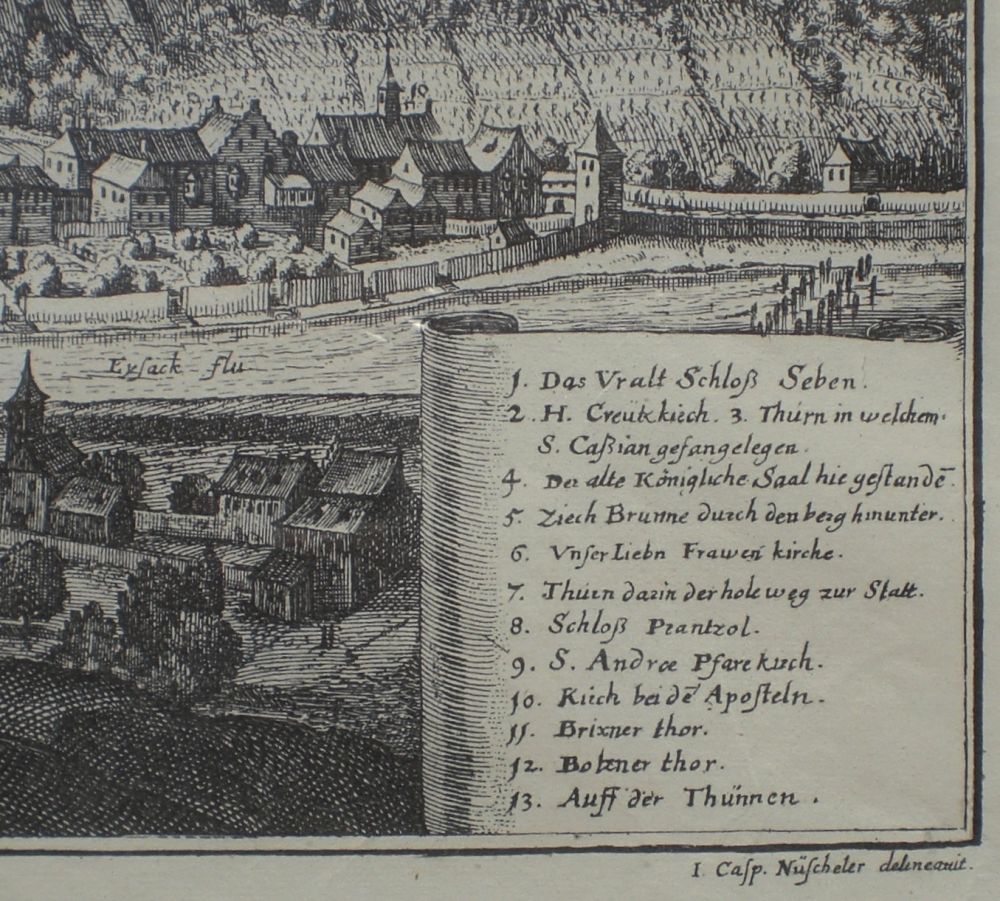 10
Eysack flu.
1. Das Vralt Schloß Seben.
2. H. Creütz kirch. 3. Thurn in welchem
S. Caßian gefangelegen.
4. Der alte Königliche Saal hie gestandē.
5. Ziech Brunne durch den berg hinunter.
6. Vnser Liebn Frawen kirche.
7. Thurn darin der hole weg zur Statt.
8. Schloß Prantzol.
9. S. Andræ Pfarr kirch.
10. Kirch bei dē Aposteln.
11. Brixner thor.
12. Botzner thor.
13. Auff der Thünnen.
I. Casp. Nüscheler delineavit.